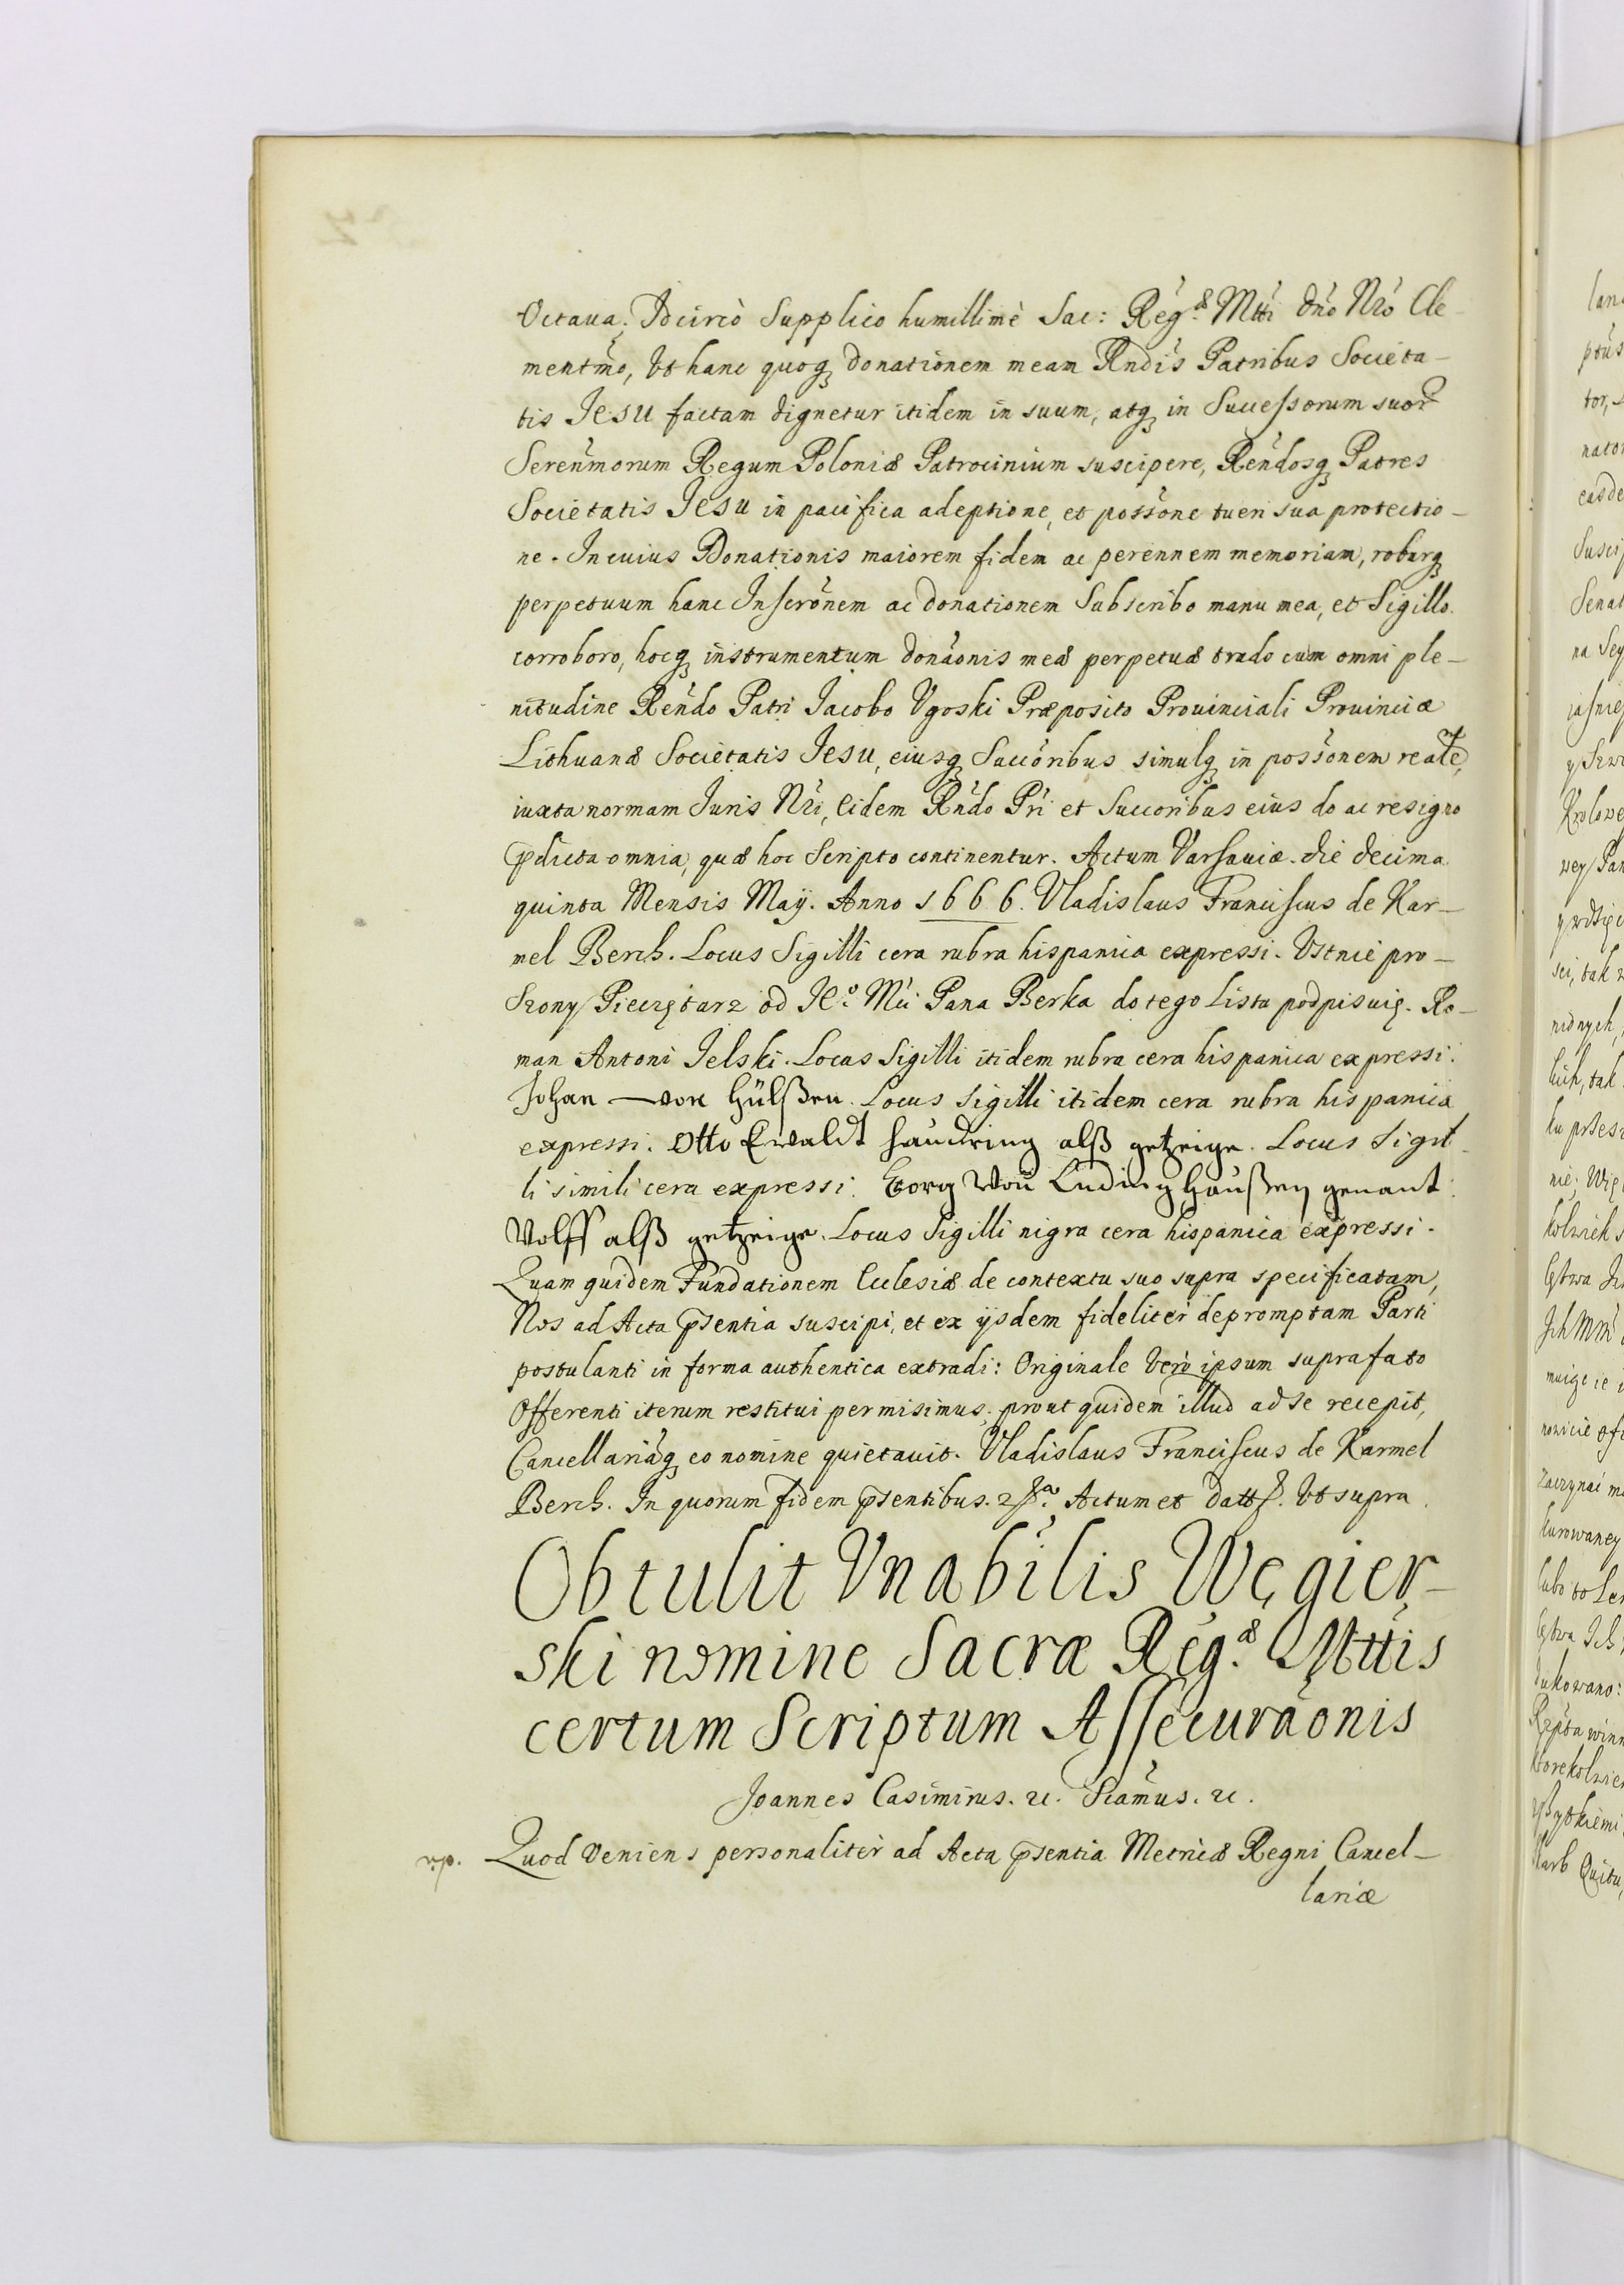 Octaua; Idcircò Supplico humillimè Sac: Regæ. Mtti Dno Nro Cle-
mentmo, Vt hanc quoq donationem meam Rndis Patribus Societa-
tis Jesu factam dignetur itidem in suum, atq in Successorum suor
Serenmorum Regum Poloniæ Patrocinium suscipere, Rendosq Patres
Societatis Jesu in pacifica adeptione, et possone tueri sua protectio-
ne. In cuius Donationis maiorem fidem ac perennem memoriam, roburq
perpetuum hanc Inscronem ac donationem Subscribo manu mea, et Sigillo
corroboro, hocq instrumentum donaonis meæ perpetuæ trado cum omni ple-
nitudine Rendo Patri Jacobo Vgoski Præposito Prouinciali Prouinciæ
Lithuanæ Societatis Jesu, eiusq Succoribus simulq in possonem realē,
iuxta normam Juris Nri, Eidem Rndo Pri et Succoribus eius do ac resigno
pdicta omnia, quæ hoc Scripto continentur. Actum Varsauiæ. die decima
quinta Mensis Maÿ. Anno 1666. Vladislaus Franciscus de Kar-
mel Berch. Locus Sigilli cera rubra hispanica expressi. Vstnie pro-
szony Pieczętarz od Jeo. Mći Pana Berka do tego Lista podpisuię. Ro-
man Antoni Jelski. Locus Sigilli itidem rubra cera hispanica expressi.
Johan von Hülßen. Locus Sigilli itidem cera rubra hispanica
expressi. Otto Ewaldt Haudring alß getzeige. Locus Sigil-
li simili cera expressi. Georg Von Ludinghaußen genant
Volff alß getzeige. Locus Sigilli nigra cera hispanica expressi.
Quam quidem Fundationem Ecclesiæ de contextu suo supra specificatam,
Nos ad Acta psentia suscipi, et ex ijsdem fideliter depromptam Parti
postulanti in forma authentica extradi: Originale Vero ipsum suprafato
Offerenti iterum restitui permisimus, prout quidem illud ad se recepit,
Cancellariaq eo nomine quietauit. Vladislaus Franciscus de Karmel
Berch. In quorum fidem psentibus. Actum et datt. Vt supra
Obtulit Vnabilis Węgier-
ski nomine Sacræ Regæ. Mttis
certum Scriptum Assecuraonis
Joannes Casimirus. &c. Scamus. &c.
Quod Veniens personaliter ad Acta psentia Metricæ Regni Cancel-
lariæ